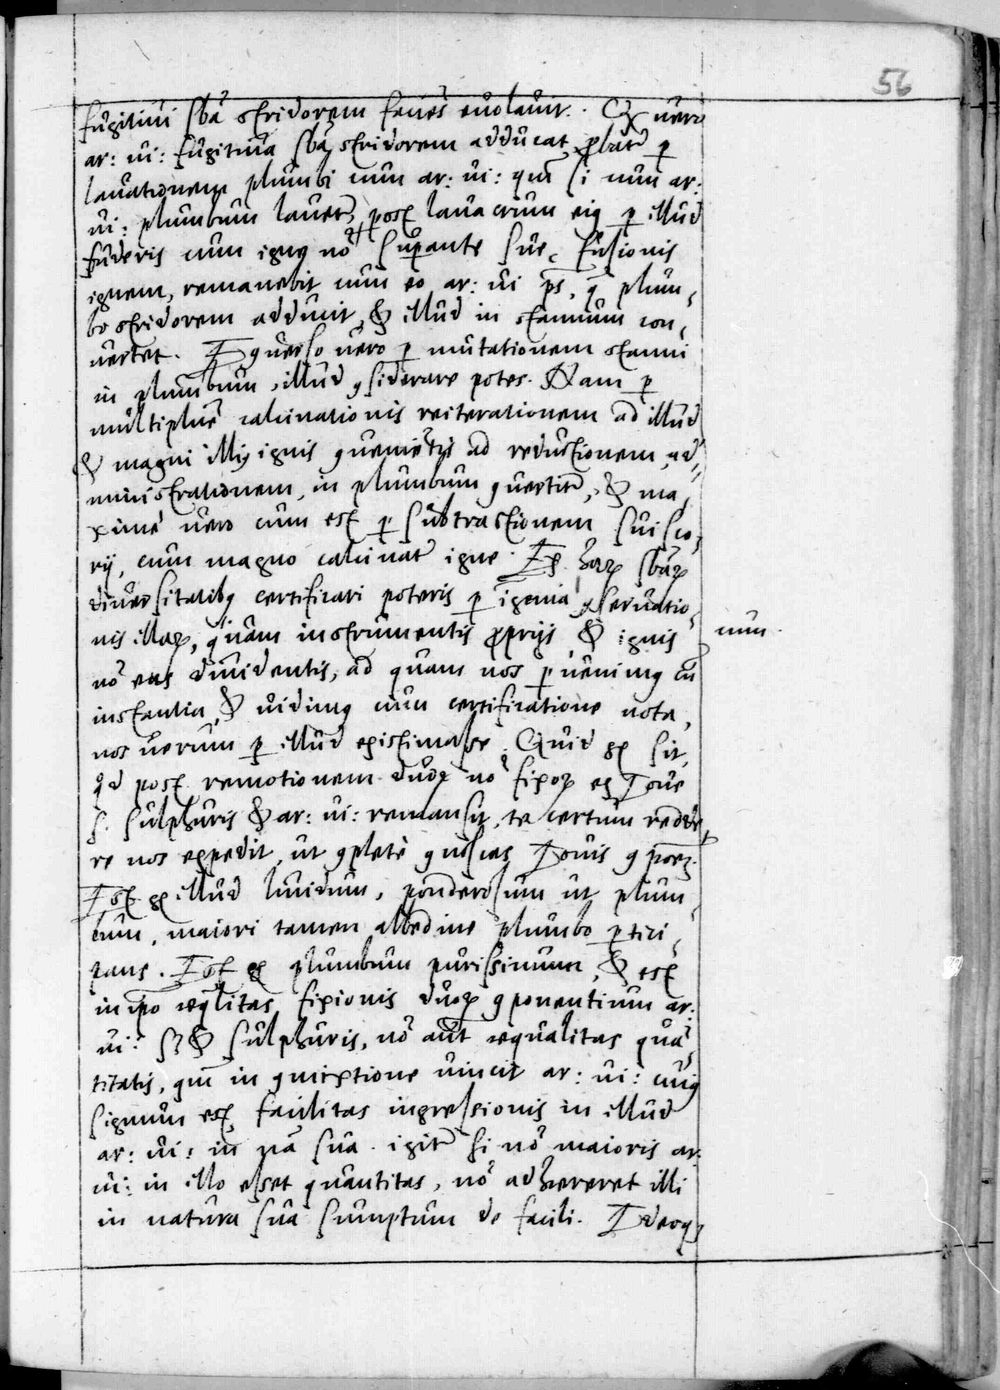 56
fugitiui sbã stridorem faciẽs euolauit. Q vero
ar: ui: fugitiua sbã stridorem adducat, ꝓbatr̃ ꝑ
lauationem plumbi cum ar: ui: qm̃ si cum ar:
ui: plumbum lauetr̃, & post lauacrum eiꝰ ꝑ illud
fuderis cum igne nõ suꝑante suę fusionis
ignem, remanebit cum eo ar: ui ps, q̃ plum-
bo stridorem adducit, & illud in stannum con-
uertet. E ꝯuerso uero ꝑ mutationem stanni
in plumbum, illud ꝯsiderare potes. Nam ꝑ
multiplicẽ calcinationis reiterationem ad illud
& magni illiꝰ ignis ꝯueniẽtis ad reductionem, ad-
ministrationem, in plumbum ꝯuertitr̃, & ma-
xime vero cum est ꝑ subtractionem sui sco-
rij, cum magno calcinatr̃ igne. Ex haꝝ sbaꝝ
diuersitatibꝰ certificari poteris ꝑ ĩgenia ꝯseruatio-
nis illaꝝ, quam instrumentis ꝓprijs, & ignis
num.
nõ eas diuidentis, ad quam nos ꝑuenimꝰ cũ
instantia, & uidimꝰ cum certificatione nota,
nos uerum ꝑ illud existimasse. Quid g̃ sit,
qd̃ post remotionem duoꝝ nõ fixoꝝ ex Ioue
s. sulphuris & ar: ui: remansit, te certum redde-
re nos expedit, ut ꝯplete ꝯnoscas Iouis ꝯpoem̃.
Est g̃ illud liuidum, ponderosum ut plum-
bum, maiori tamen albedine plumbo ꝑtici-
pans. Est g̃ plumbum purissimum, & est
in ipõ æqlitas fixionis duoꝝ ꝯponentium ar:
ui: s & sulphuris, nõ aũt æqualitas quã-
titatis, qm̃ in ꝯmixtione uincit ar: ui: cuiꝰ
signum est, facilitas ingressionis in illud
ar: ui: in nã sua. igitr̃ si nõ maioris ar:
ui: in illo esset quantitas, nõ adhæreret illi
in natura sua sumptum de facili. Ideoqꝫ